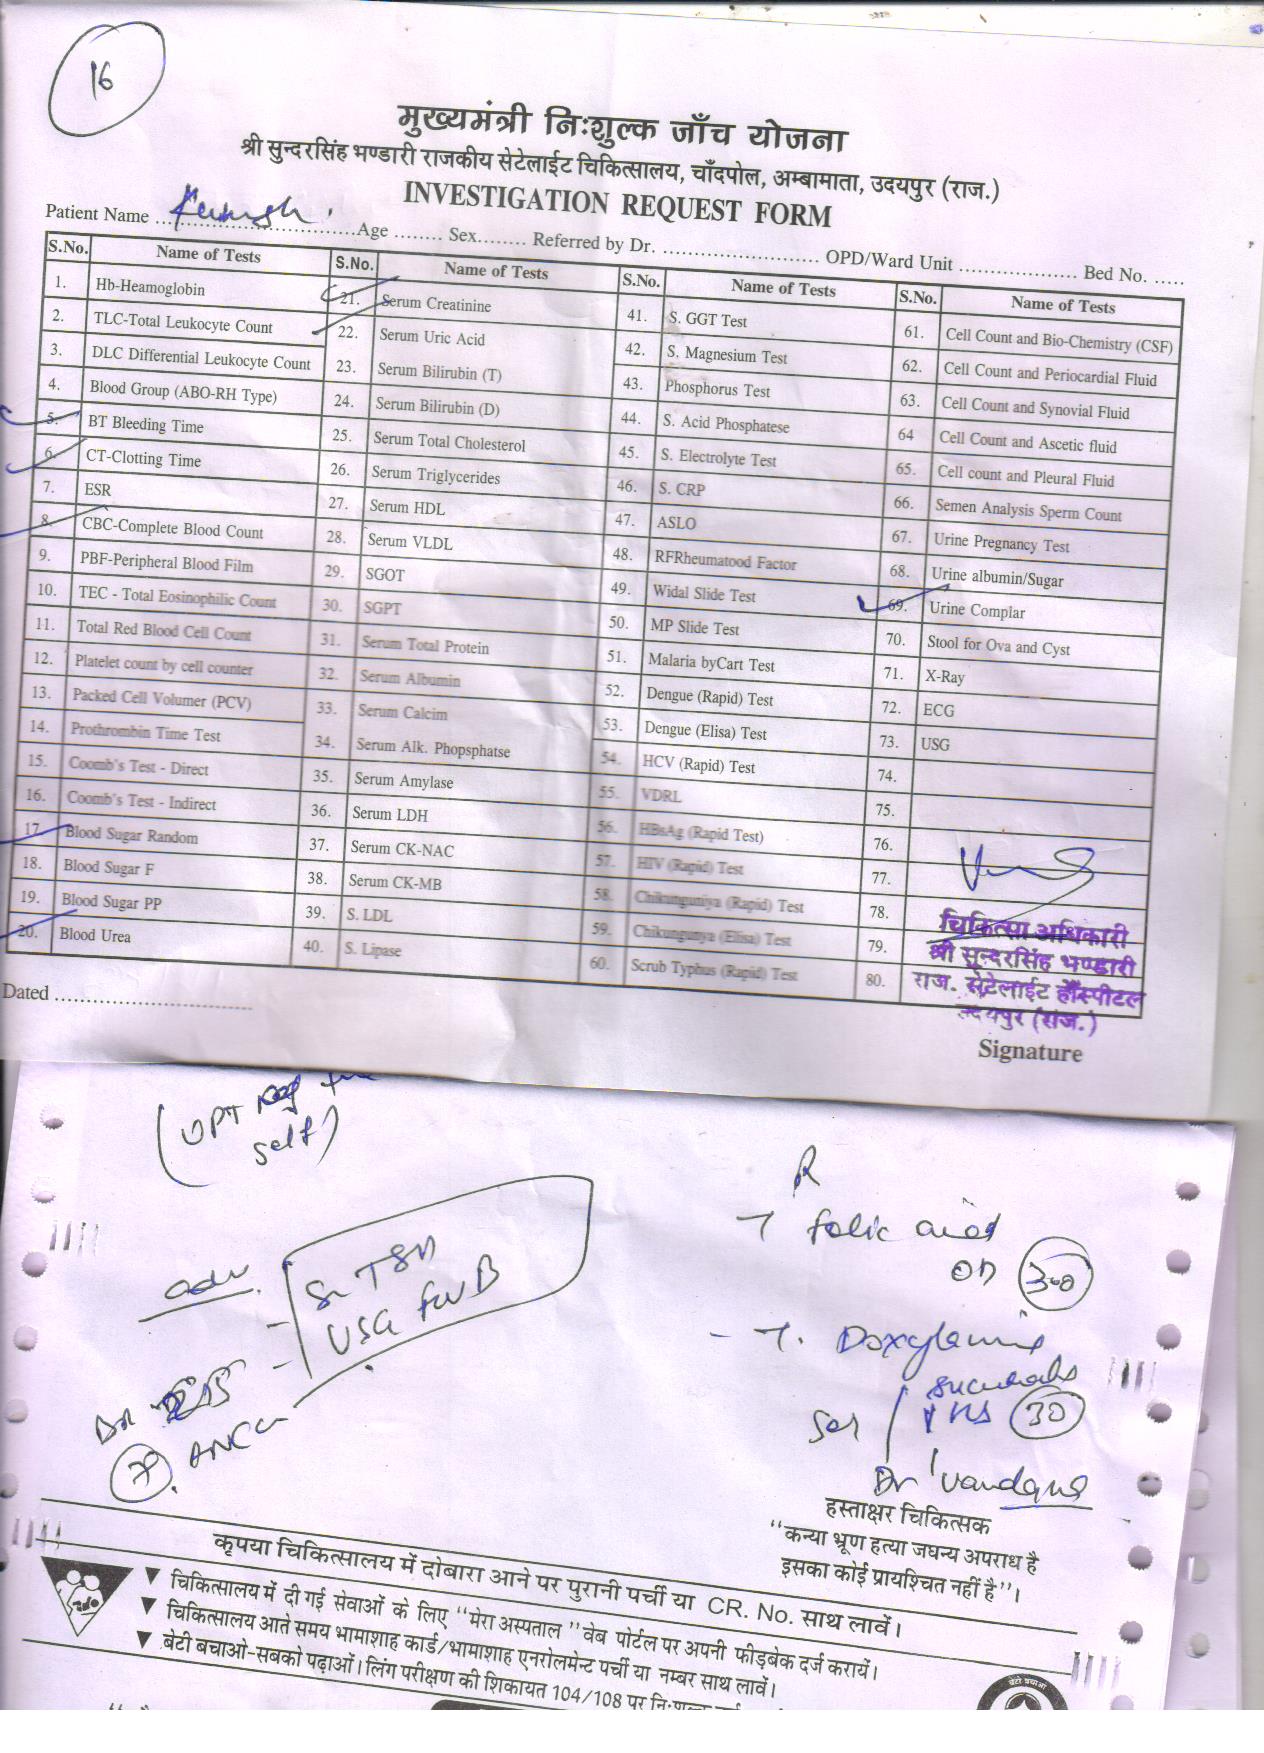 16
मुख्यमंत्री निःशुल्क जाँच योजना
श्री सुन्दरसिंह भण्डारी राजकीय सेटेलाईट चिकित्सालय, चाँदपोल, अम्बामाता, उदयपुर (राज.)
INVESTIGATION REQUEST FORM
Patient Name ............ Age ........ Sex........ Referred by Dr. ........................ OPD/Ward Unit .................. Bed No. .....
S.No. Name of Tests S.No. Name of Tests S.No. Name of Tests S.No. Name of Tests
1. Hb-Heamoglobin 21. Serum Creatinine 41. S. GGT Test 61. Cell Count and Bio-Chemistry (CSF)
2. TLC-Total Leukocyte Count 22. Serum Uric Acid 42. S. Magnesium Test 62. Cell Count and Periocardial Fluid
3. DLC Differential Leukocyte Count 23. Serum Bilirubin (T) 43. Phosphorus Test 63. Cell Count and Synovial Fluid
4. Blood Group (ABO-RH Type) 24. Serum Bilirubin (D) 44. S. Acid Phosphatese 64 Cell Count and Ascetic fluid
5. BT Bleeding Time 25. Serum Total Cholesterol 45. S. Electrolyte Test 65. Cell count and Pleural Fluid
6. CT-Clotting Time 26. Serum Triglycerides 46. S. CRP 66. Semen Analysis Sperm Count
7. ESR 27. Serum HDL 47. ASLO 67. Urine Pregnancy Test
8. CBC-Complete Blood Count 28. Serum VLDL 48. RFRheumatood Factor 68. Urine albumin/Sugar
9. PBF-Peripheral Blood Film 29. SGOT 49. Widal Slide Test 69. Urine Complar
10. TEC - Total Eosinophilic Count 30. SGPT 50. MP Slide Test 70. Stool for Ova and Cyst
11. Total Red Blood Cell Count 31. Serum Total Protein 51. Malaria byCart Test 71. X-Ray
12. Platelet count by cell counter 32. Serum Albumin 52. Dengue (Rapid) Test 72. ECG
13. Packed Cell Volumer (PCV) 33. Serum Calcim 53. Dengue (Elisa) Test 73. USG
14. Prothrombin Time Test 34. Serum Alk. Phopsphatse 54. HCV (Rapid) Test 74.
15. Coomb's Test - Direct 35. Serum Amylase 55. VDRL 75.
16. Coomb's Test - Indirect 36. Serum LDH 56. HBsAg (Rapid Test) 76.
17. Blood Sugar Random 37. Serum CK-NAC 57. HIV (Rapid) Test 77.
18. Blood Sugar F 38. Serum CK-MB 58. Chikunguniya (Rapid) Test 78.
19. Blood Sugar PP 39. S. LDL 59. Chikungunya (Elisa) Test 79.
20. Blood Urea 40. S. Lipase 60. Scrub Typhus (Rapid) Test 80.
चिकित्सा अधिकारी
श्री सुन्दरसिंह भण्डारी
राज. सेटेलाईट हॉस्पीटल
उदयपुर (राज.)
Dated ..............................
Signature
(UPT
self)
R
T folic acid
OD 30
adv.
S. TSH
USG FWB
- T. Doxylamine
succinate
HS 30
ANC
Dr Vandana
हस्ताक्षर चिकित्सक
"कन्या भ्रूण हत्या जघन्य अपराध है
इसका कोई प्रायश्चित नहीं है"।
कृपया चिकित्सालय में दोबारा आने पर पुरानी पर्ची या CR. No. साथ लावें।
▼ चिकित्सालय में दी गई सेवाओं के लिए "मेरा अस्पताल" वेब पोर्टल पर अपनी फीडबेक दर्ज करायें।
▼ चिकित्सालय आते समय भामाशाह कार्ड/भामाशाह एनरोलमेन्ट पर्ची या नम्बर साथ लावें।
▼ बेटी बचाओ-सबको पढ़ाओ। लिंग परीक्षण की शिकायत 104/108 पर
बेटी बचाओ